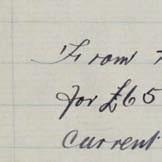 From
for £65
current